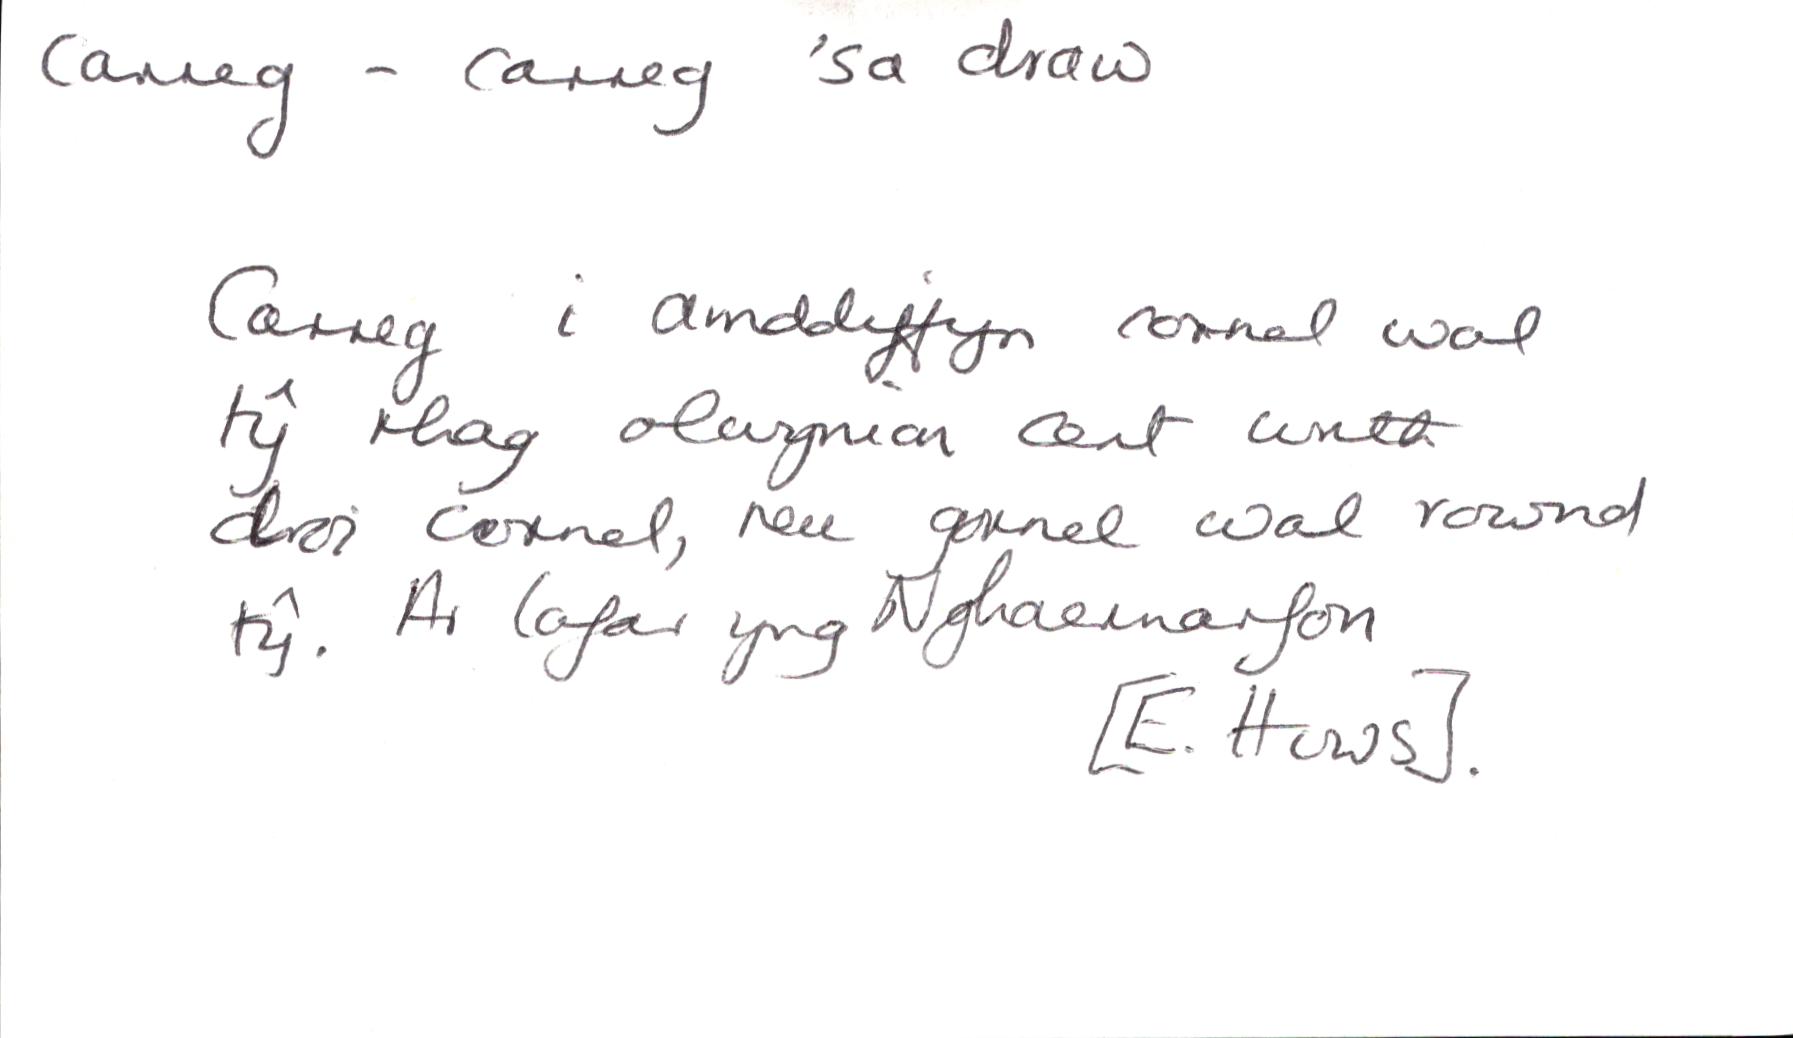 Carreg - carreg 'sa draw
Carreg i amddiffyn cornel wal
tŷ rhag olwynion cert wrth
droi cornel, neu gornel wal rownd
tŷ. Ar lafar yng Nghaernarfon
[E. Huws].